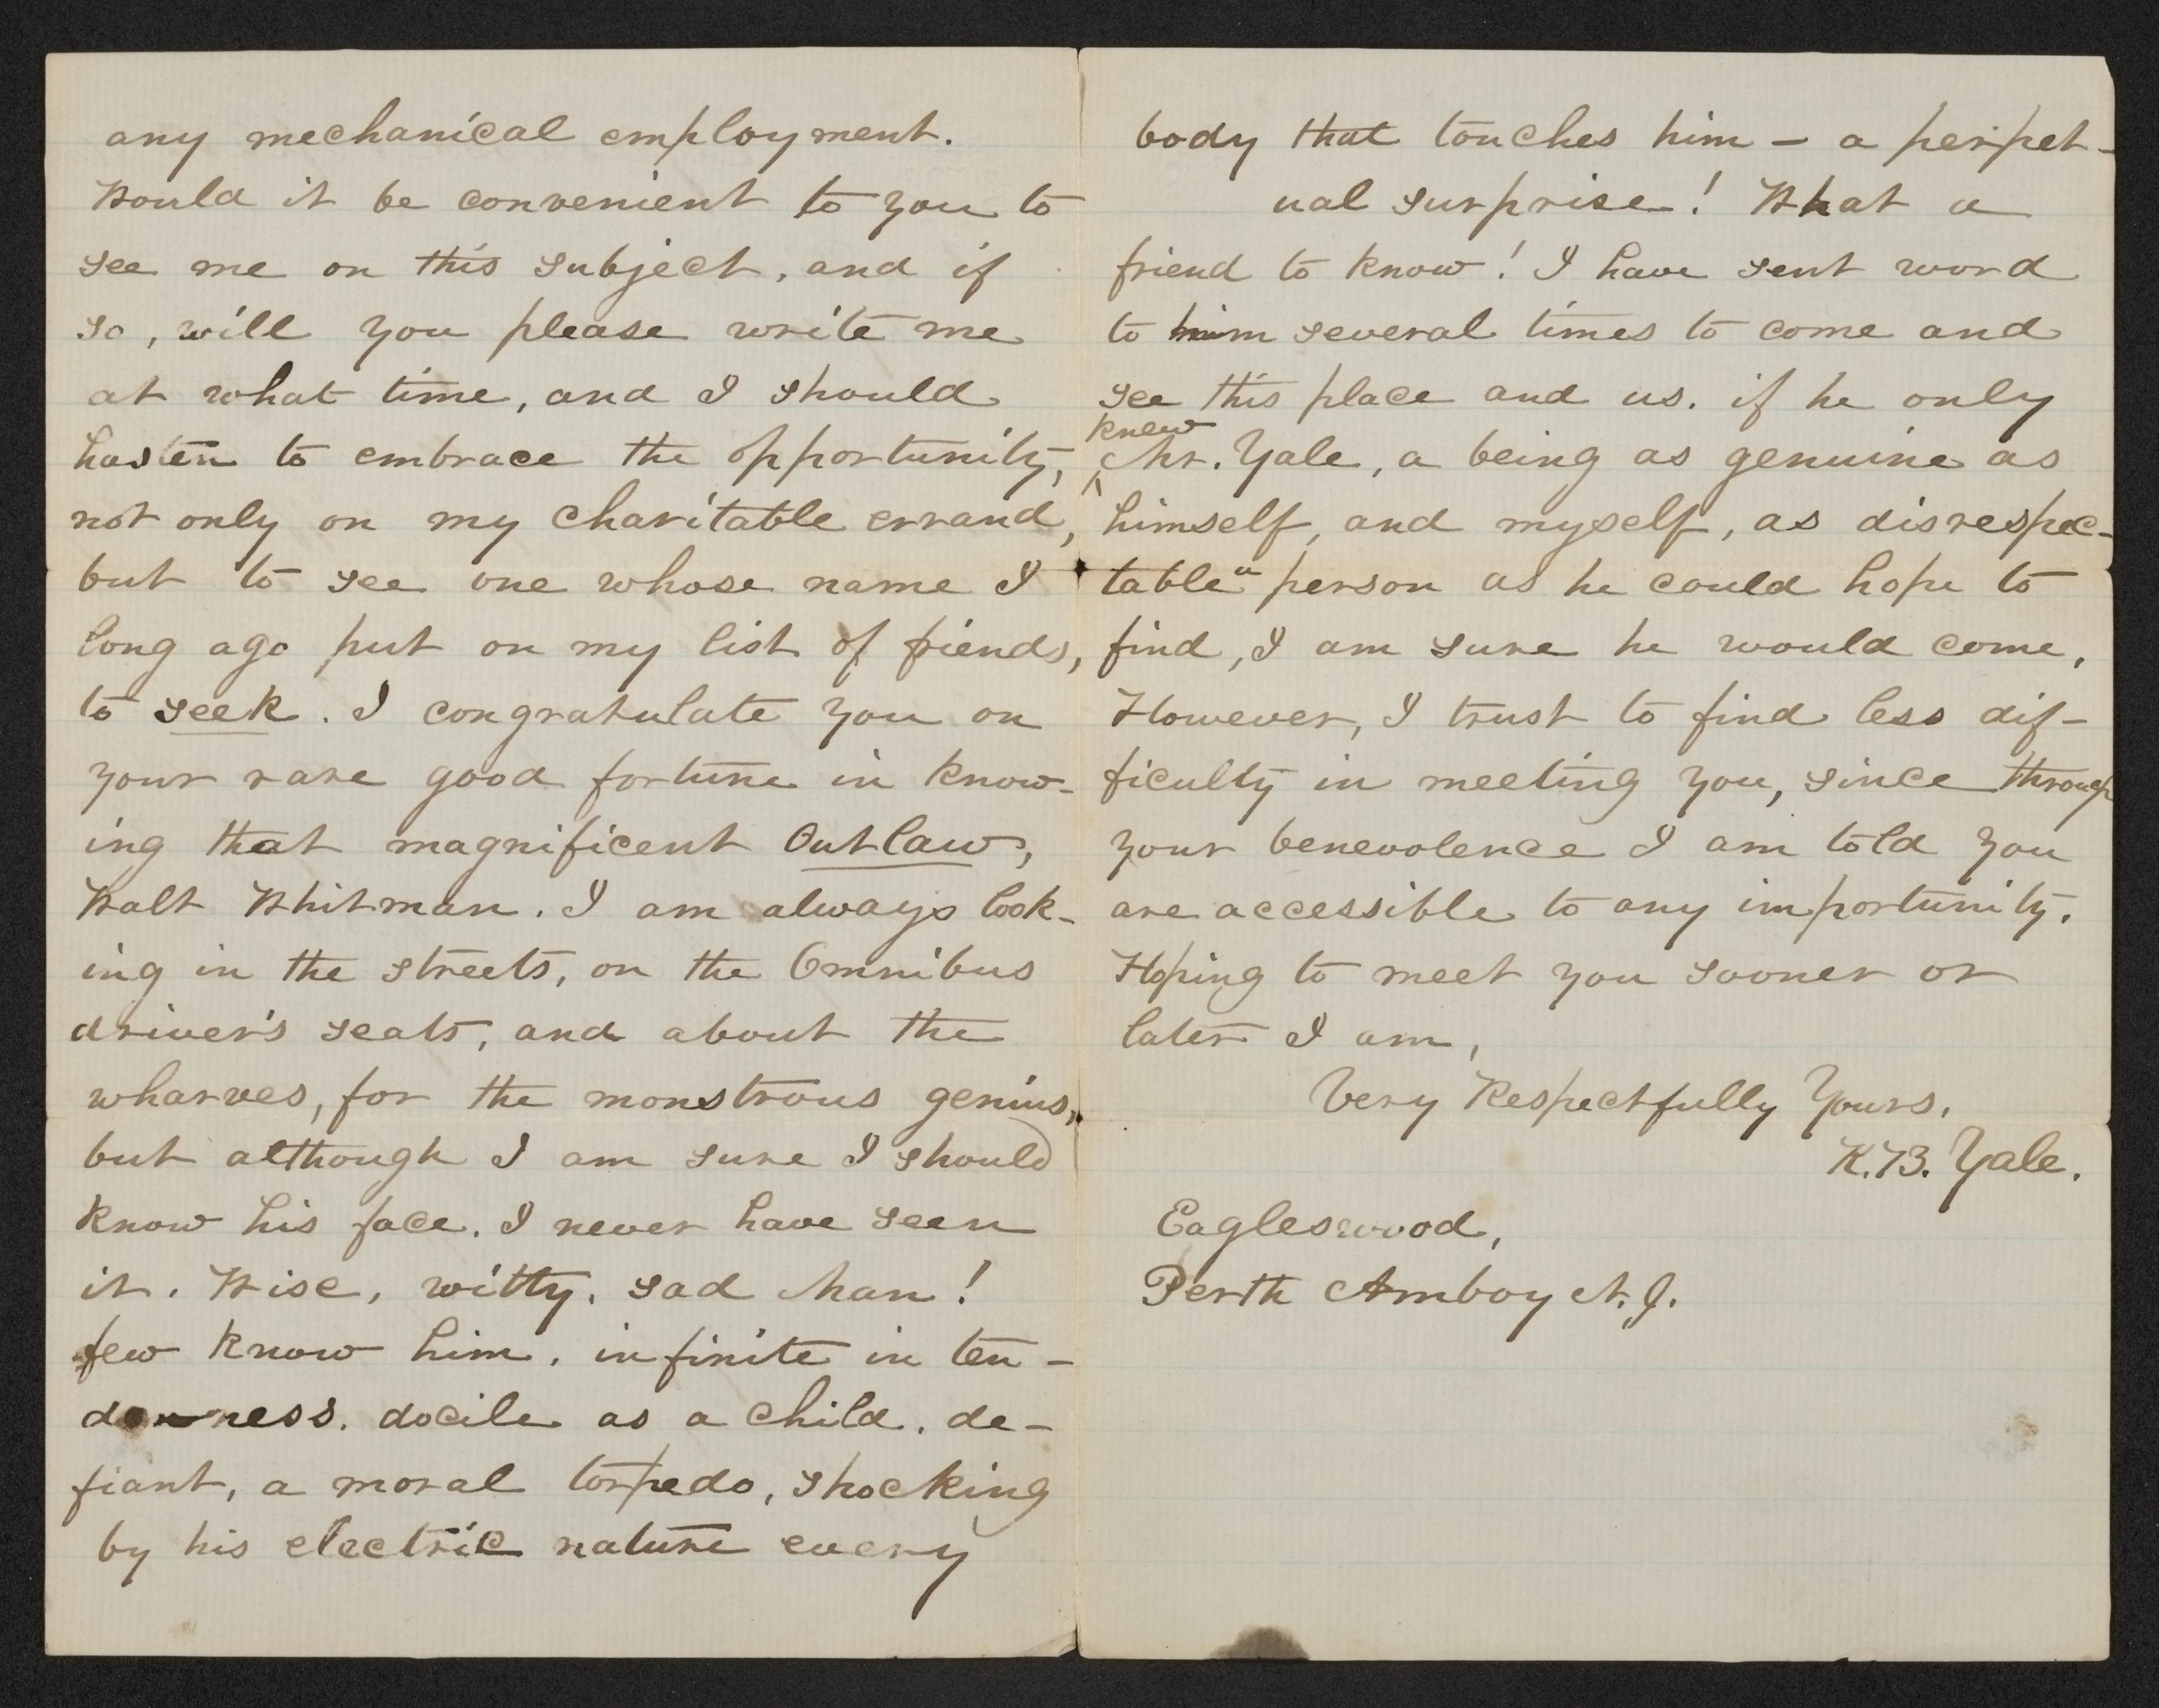 any mechanical employment.
Would it be convenient to you to
see me on this subject, and if
so, will you please write me
at what time, and I should
hasten to embrace the opportunity,
not only on my charitable errand,
but to see one whose name I
long ago put on my list of friends,
to seek. I congratulate you on
your rare good fortune in know-
ing that magnificent Outlaw,
Walt Whitman. I am always look-
ing in the streets, on the Omnibus
driver's seats, and about the
wharves, for the monstrous genius,
but although I am sure I should
know his face. I never have seen
it. Wise, witty, sad Man!
few know him. infinite in ten-
derness. docile as a child. de-
fiant, a moral torpedo, shocking
by his electric nature every
body that touches him – a perpet-
ual surprise! What a
friend to know! I have sent word
to him several times to come and
see this place and us. if he only
knew
Mr. Yale, a being as genuine as
himself, and myself, as disrespec-
table" person as he could hope to
find, I am sure he would come,
However, I trust to find less dif-
ficulty in meeting you, since through
your benevolence I am told you
are accessible to any importunity.
Hoping to meet you sooner or
later I am,
Very Respectfully Yours,
K.B. Yale.
Eagleswood,
Perth Amboy N.J.